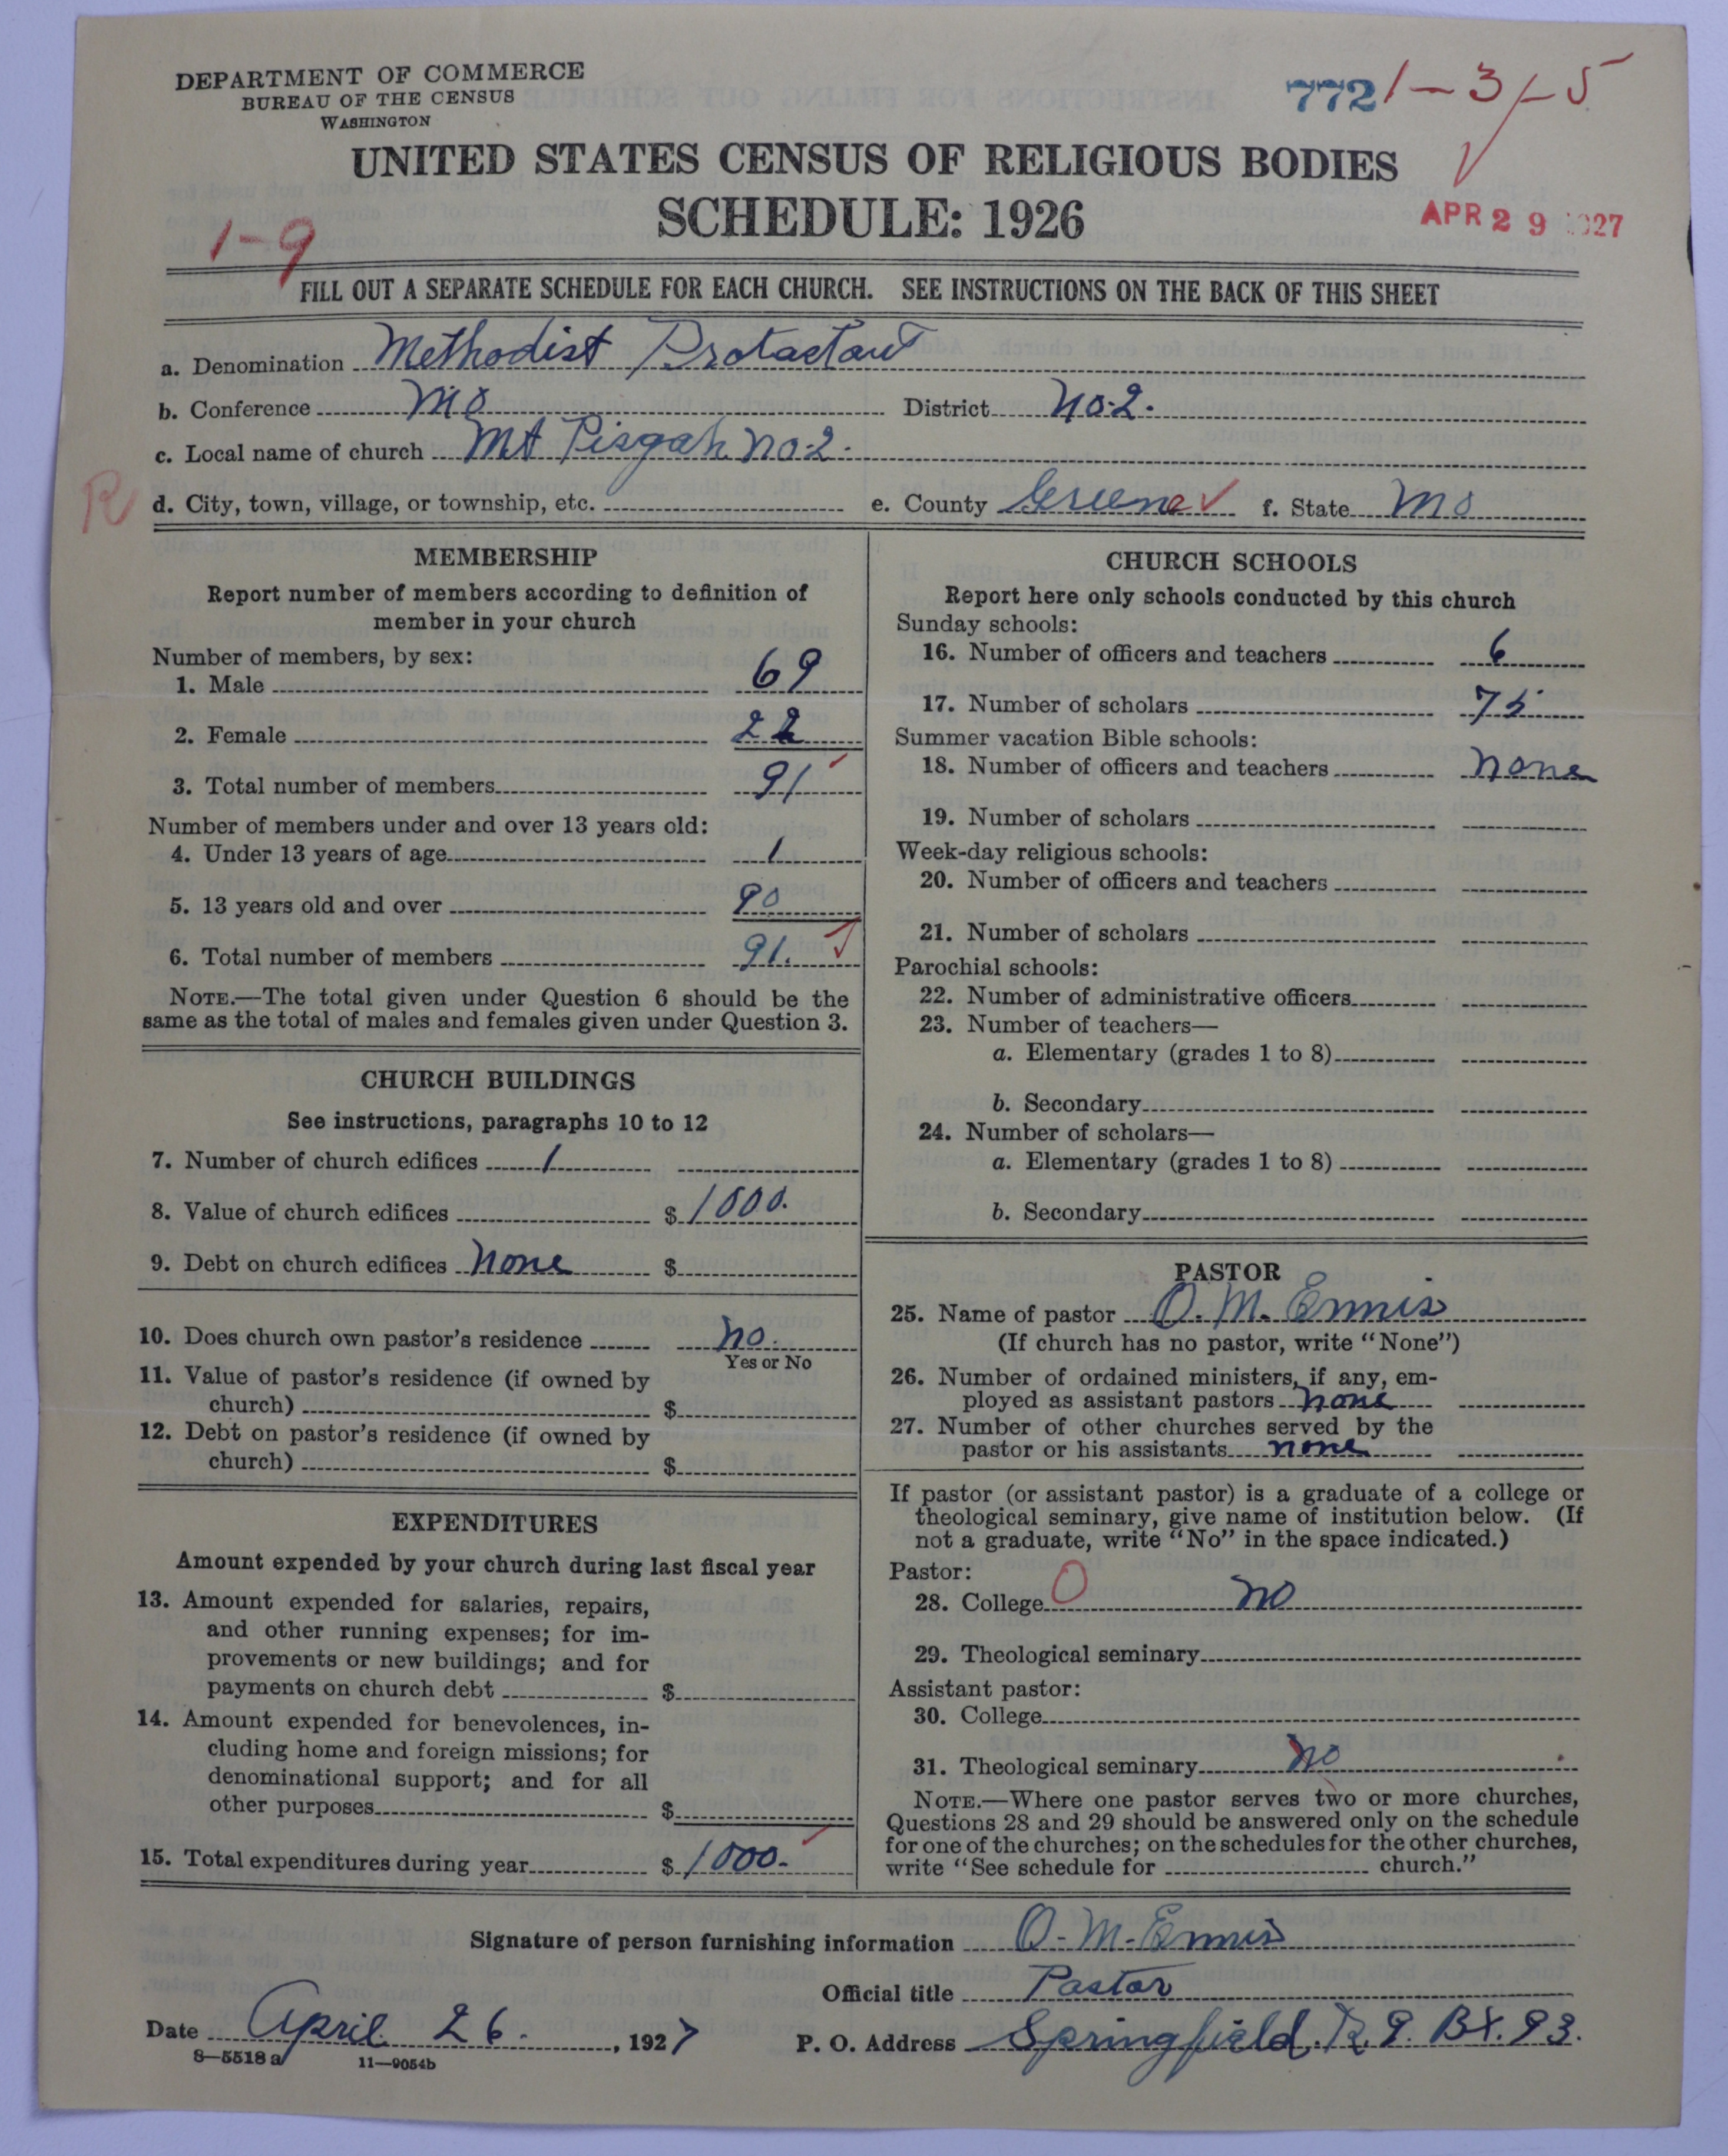 DEPARTMENT OF COMMERCE
BUREAU OF THE CENSUS
WASHINGTON
772 1-3-5
UNITED STATES CENSUS OF RELIGIOUS BODIES
SCHEDULE: 1926
1-9
APR 29 1927
FILL OUT A SEPARATE SCHEDULE FOR EACH CHURCH. SEE INSTRUCTIONS ON THE BACK OF THIS SHEET
a. Denomination Methodist Protactant
b. Conference Mo District No. 2.
c. Local name of church Mt Pisgah No. 2.
R
d. City, town, village, or township, etc. e. County Greene f. State Mo
MEMBERSHIP
Report number of members according to definition of
member in your church
Number of members, by sex:
1. Male 69
2. Female 22
3. Total number of members 91
Number of members under and over 13 years old:
4. Under 13 years of age 1
5. 13 years old and over 90
6. Total number of members 91.
NOTE.—The total given under Question 6 should be the
same as the total of males and females given under Question 3.
CHURCH BUILDINGS
See instructions, paragraphs 10 to 12
7. Number of church edifices 1
8. Value of church edifices $ 1000.
9. Debt on church edifices None $
10. Does church own pastor's residence No.
Yes or No
11. Value of pastor's residence (if owned by
church) $
12. Debt on pastor's residence (if owned by
church) $
EXPENDITURES
Amount expended by your church during last fiscal year
13. Amount expended for salaries, repairs,
and other running expenses; for im-
provements or new buildings; and for
payments on church debt $
14. Amount expended for benevolences, in-
cluding home and foreign missions; for
denominational support; and for all
other purposes $
15. Total expenditures during year $ 1000.
CHURCH SCHOOLS
Report here only schools conducted by this church
Sunday schools:
16. Number of officers and teachers 6
17. Number of scholars 75
Summer vacation Bible schools:
18. Number of officers and teachers None
19. Number of scholars
Week-day religious schools:
20. Number of officers and teachers
21. Number of scholars
Parochial schools:
22. Number of administrative officers
23. Number of teachers—
a. Elementary (grades 1 to 8)
b. Secondary
24. Number of scholars—
a. Elementary (grades 1 to 8)
b. Secondary
PASTOR
25. Name of pastor O. M. Ennis
(If church has no pastor, write "None")
26. Number of ordained ministers, if any, em-
ployed as assistant pastors None
27. Number of other churches served by the
pastor or his assistants none
If pastor (or assistant pastor) is a graduate of a college or
theological seminary, give name of institution below. (If
not a graduate, write "No" in the space indicated.)
Pastor:
28. College O no
29. Theological seminary
Assistant pastor:
30. College
31. Theological seminary No
NOTE.—Where one pastor serves two or more churches,
Questions 28 and 29 should be answered only on the schedule
for one of the churches; on the schedules for the other churches,
write "See schedule for church."
Signature of person furnishing information O. M. Ennis
Official title Pastor
Date April 26., 1927 P. O. Address Springfield. R. 9. Bx. 93.
8—5518 a 11—9054b